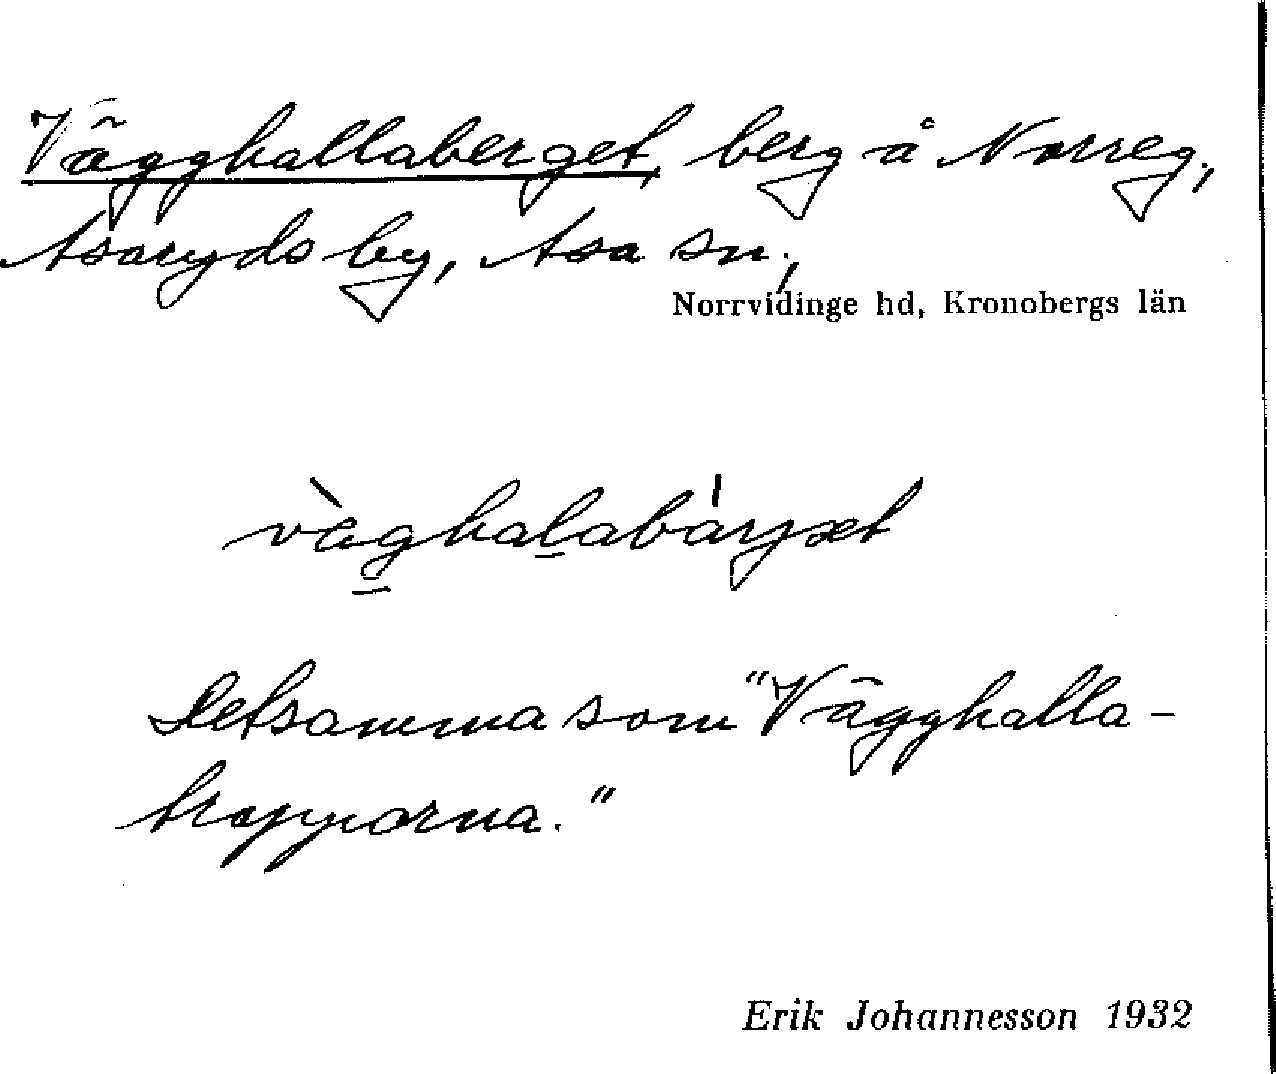 Vägghallaberget, berg å Norreg.,
Asaryds by, Asa sn,
Norrvidinge hd, Kronobergs län
vàg̲hal̲abárgət
Detsamma som "Vägghalla-
trapporna."
Erik Johannesson 1932